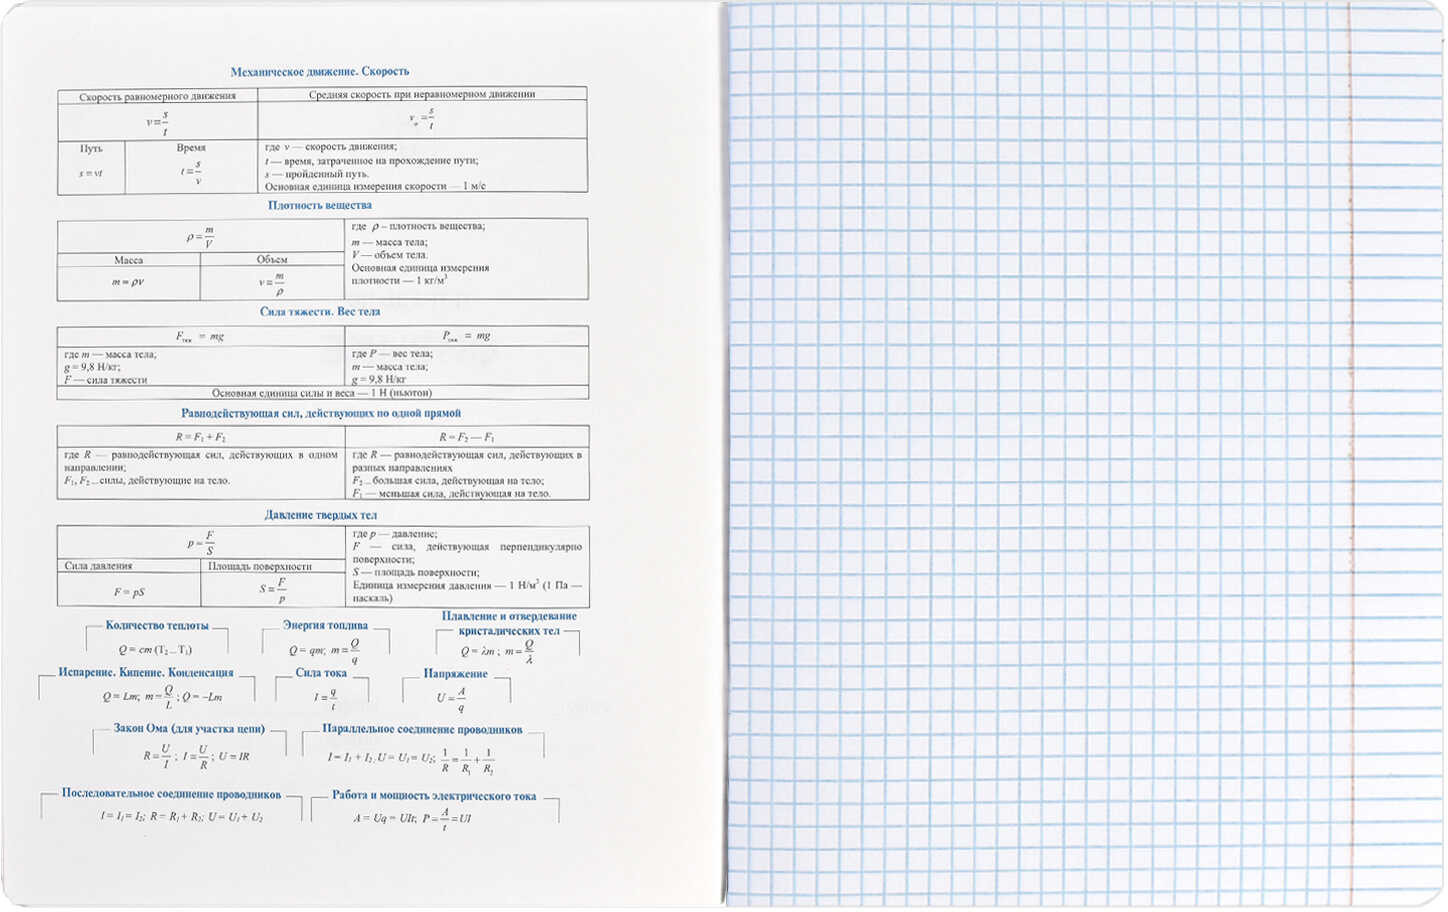 Механическое движение. Скорость
Скорость равномерного движения
Средняя скорость при неравномерном движении
v = s/t
v = s/t
Путь
Время
s = vt
t = s/v
где v — скорость движения;
t — время, затраченное на прохождение пути;
s — пройденный путь.
Основная единица измерения скорости — 1 м/с
Плотность вещества
ρ = m/V
Масса
Объем
m = ρv
v = m/ρ
где ρ – плотность вещества;
m — масса тела;
V — объем тела.
Основная единица измерения
плотности — 1 кг/м³
Сила тяжести. Вес тела
Fтяж = mg
Pтяж = mg
где m — масса тела;
g = 9,8 Н/кг;
F — сила тяжести
где P — вес тела;
m — масса тела;
g = 9,8 Н/кг
Основная единица силы и веса — 1 Н (ньютон)
Равнодействующая сил, действующих по одной прямой
R = F₁ + F₂
R = F₂ — F₁
где R — равнодействующая сил, действующих в одном
направлении;
F₁, F₂ – силы, действующие на тело.
где R — равнодействующая сил, действующих в
разных направлениях
F₂ – большая сила, действующая на тело;
F₁ — меньшая сила, действующая на тело.
Давление твердых тел
p = F/S
Сила давления
Площадь поверхности
F = pS
S = F/p
где p — давление;
F — сила, действующая перпендикулярно
поверхности;
S — площадь поверхности;
Единица измерения давления — 1 Н/м² (1 Па —
паскаль)
Количество теплоты
Q = cm (T₂ – T₁)
Энергия топлива
Q = qm; m = Q/q
Плавление и отвердевание
кристалических тел
Q = λm ; m = Q/λ
Испарение. Кипение. Конденсация
Q = Lm; m = Q/L ; Q = –Lm
Сила тока
I = q/t
Напряжение
U = A/q
Закон Ома (для участка цепи)
R = U/I ; I = U/R ; U = IR
Параллельное соединение проводников
I = I₁ + I₂ , U = U₁ = U₂; 1/R = 1/R₁ + 1/R₂
Последовательное соединение проводников
I = I₁ = I₂; R = R₁ + R₂; U = U₁ + U₂
Работа и мощность электрического тока
A = Uq = UIt; P = A/t = UI